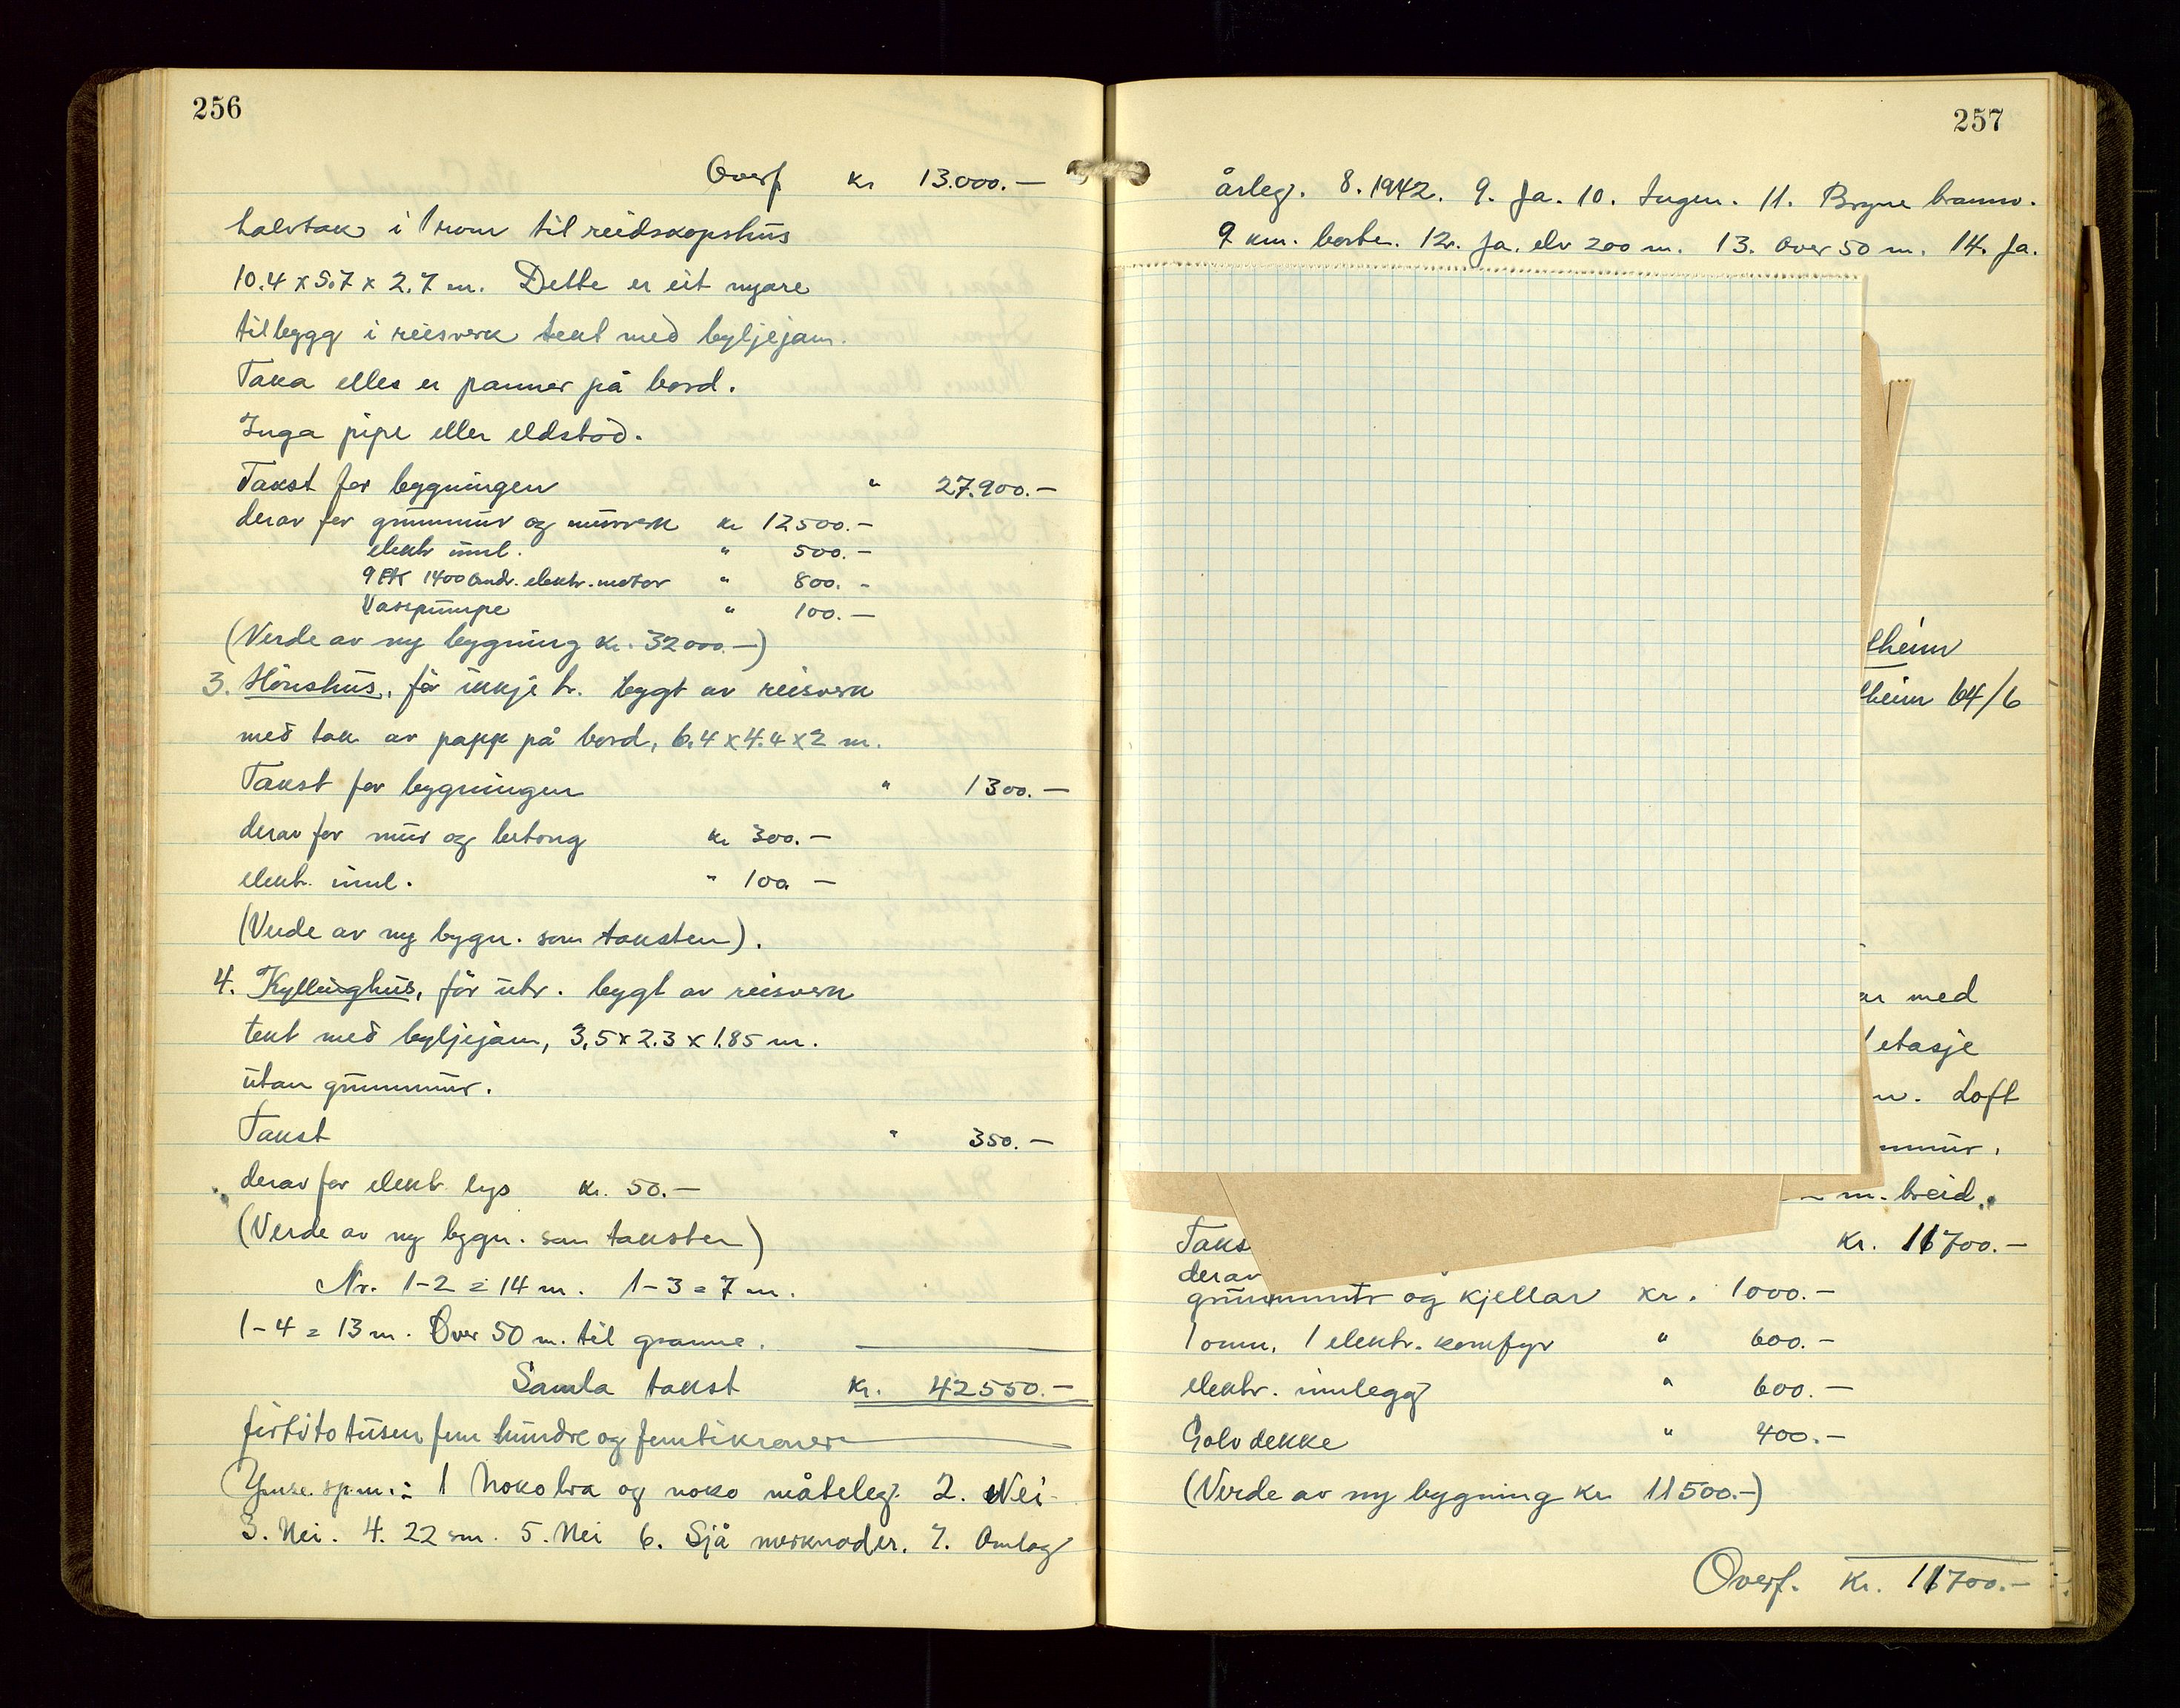 256
Overf kr 13.000.—
halvtak i 1 rom til reidskapshus
10.4 x 5.7 x 2.7 m. Dette er eit nyare
tilbygg i reisverk tekt med bylgjejarn.
Taka elles er panner på bord.
Inga pipe eller eldstad.
Takst for bygningen " 27.900.—
derav for grunnmur og murverk kr 12500.—
elektr innl. " 500.—
9 HK 1400 omdr. elektr. motor " 800.-
Vasspumpe " 100.—
(Verde av ny bygning kr. 32000.—)
3. Hönshus, för ikkje br. bygt av reisverk
med tak av papp på bord, 6.4 x 4.4 x 2 m.
Takst for bygningen " 1300.—
derav for mur og betong kr 300.—
elektr. innl. " 100 —
(Verde av ny bygn. som taksten).
4. Kyllinghus, för utr. bygt av reisverk
tekt med bylgjejarn, 3,5 x 2.3 x 1.85 m.
utan grunnmur.
Takst " 350.—
derav for elektr lys kr. 50.—
(Verde av ny bygn. som taksten)
Nr. 1-2 = 14 m. 1-3 = 7 m.
1-4 = 13 m. Over 50 m. til granne.
Samla takst kr. 42550.—
firtito tusen fem hundre og femti kroner
Ymse sp.m.: 1 Noko bra og noko måteleg. 2. Nei
3. Nei. 4. 22 sm. 5. Nei 6. Sjå merknader. 7. Omlag
257
årleg. 8. 1942. 9. Ja. 10. Ingen. 11. Bryne brannv.
9 km. borte. 12. Ja. elv 200 m. 13. Over 50 m. 14. Ja.
lheim
lheim 64/6
ar med
1 etasje
m. Loft
nmur.
m. breid.
Taks kr. 11700.—
derav
grunnmur og kjellar kr. 1000.—
1 omn, 1 elektr. komfyr " 600.—
elektr. innlegg " 600.—
Golvdekke " 400.—
(Verde av ny bygning kr 11500.-)
Overf. kr. 11700.—